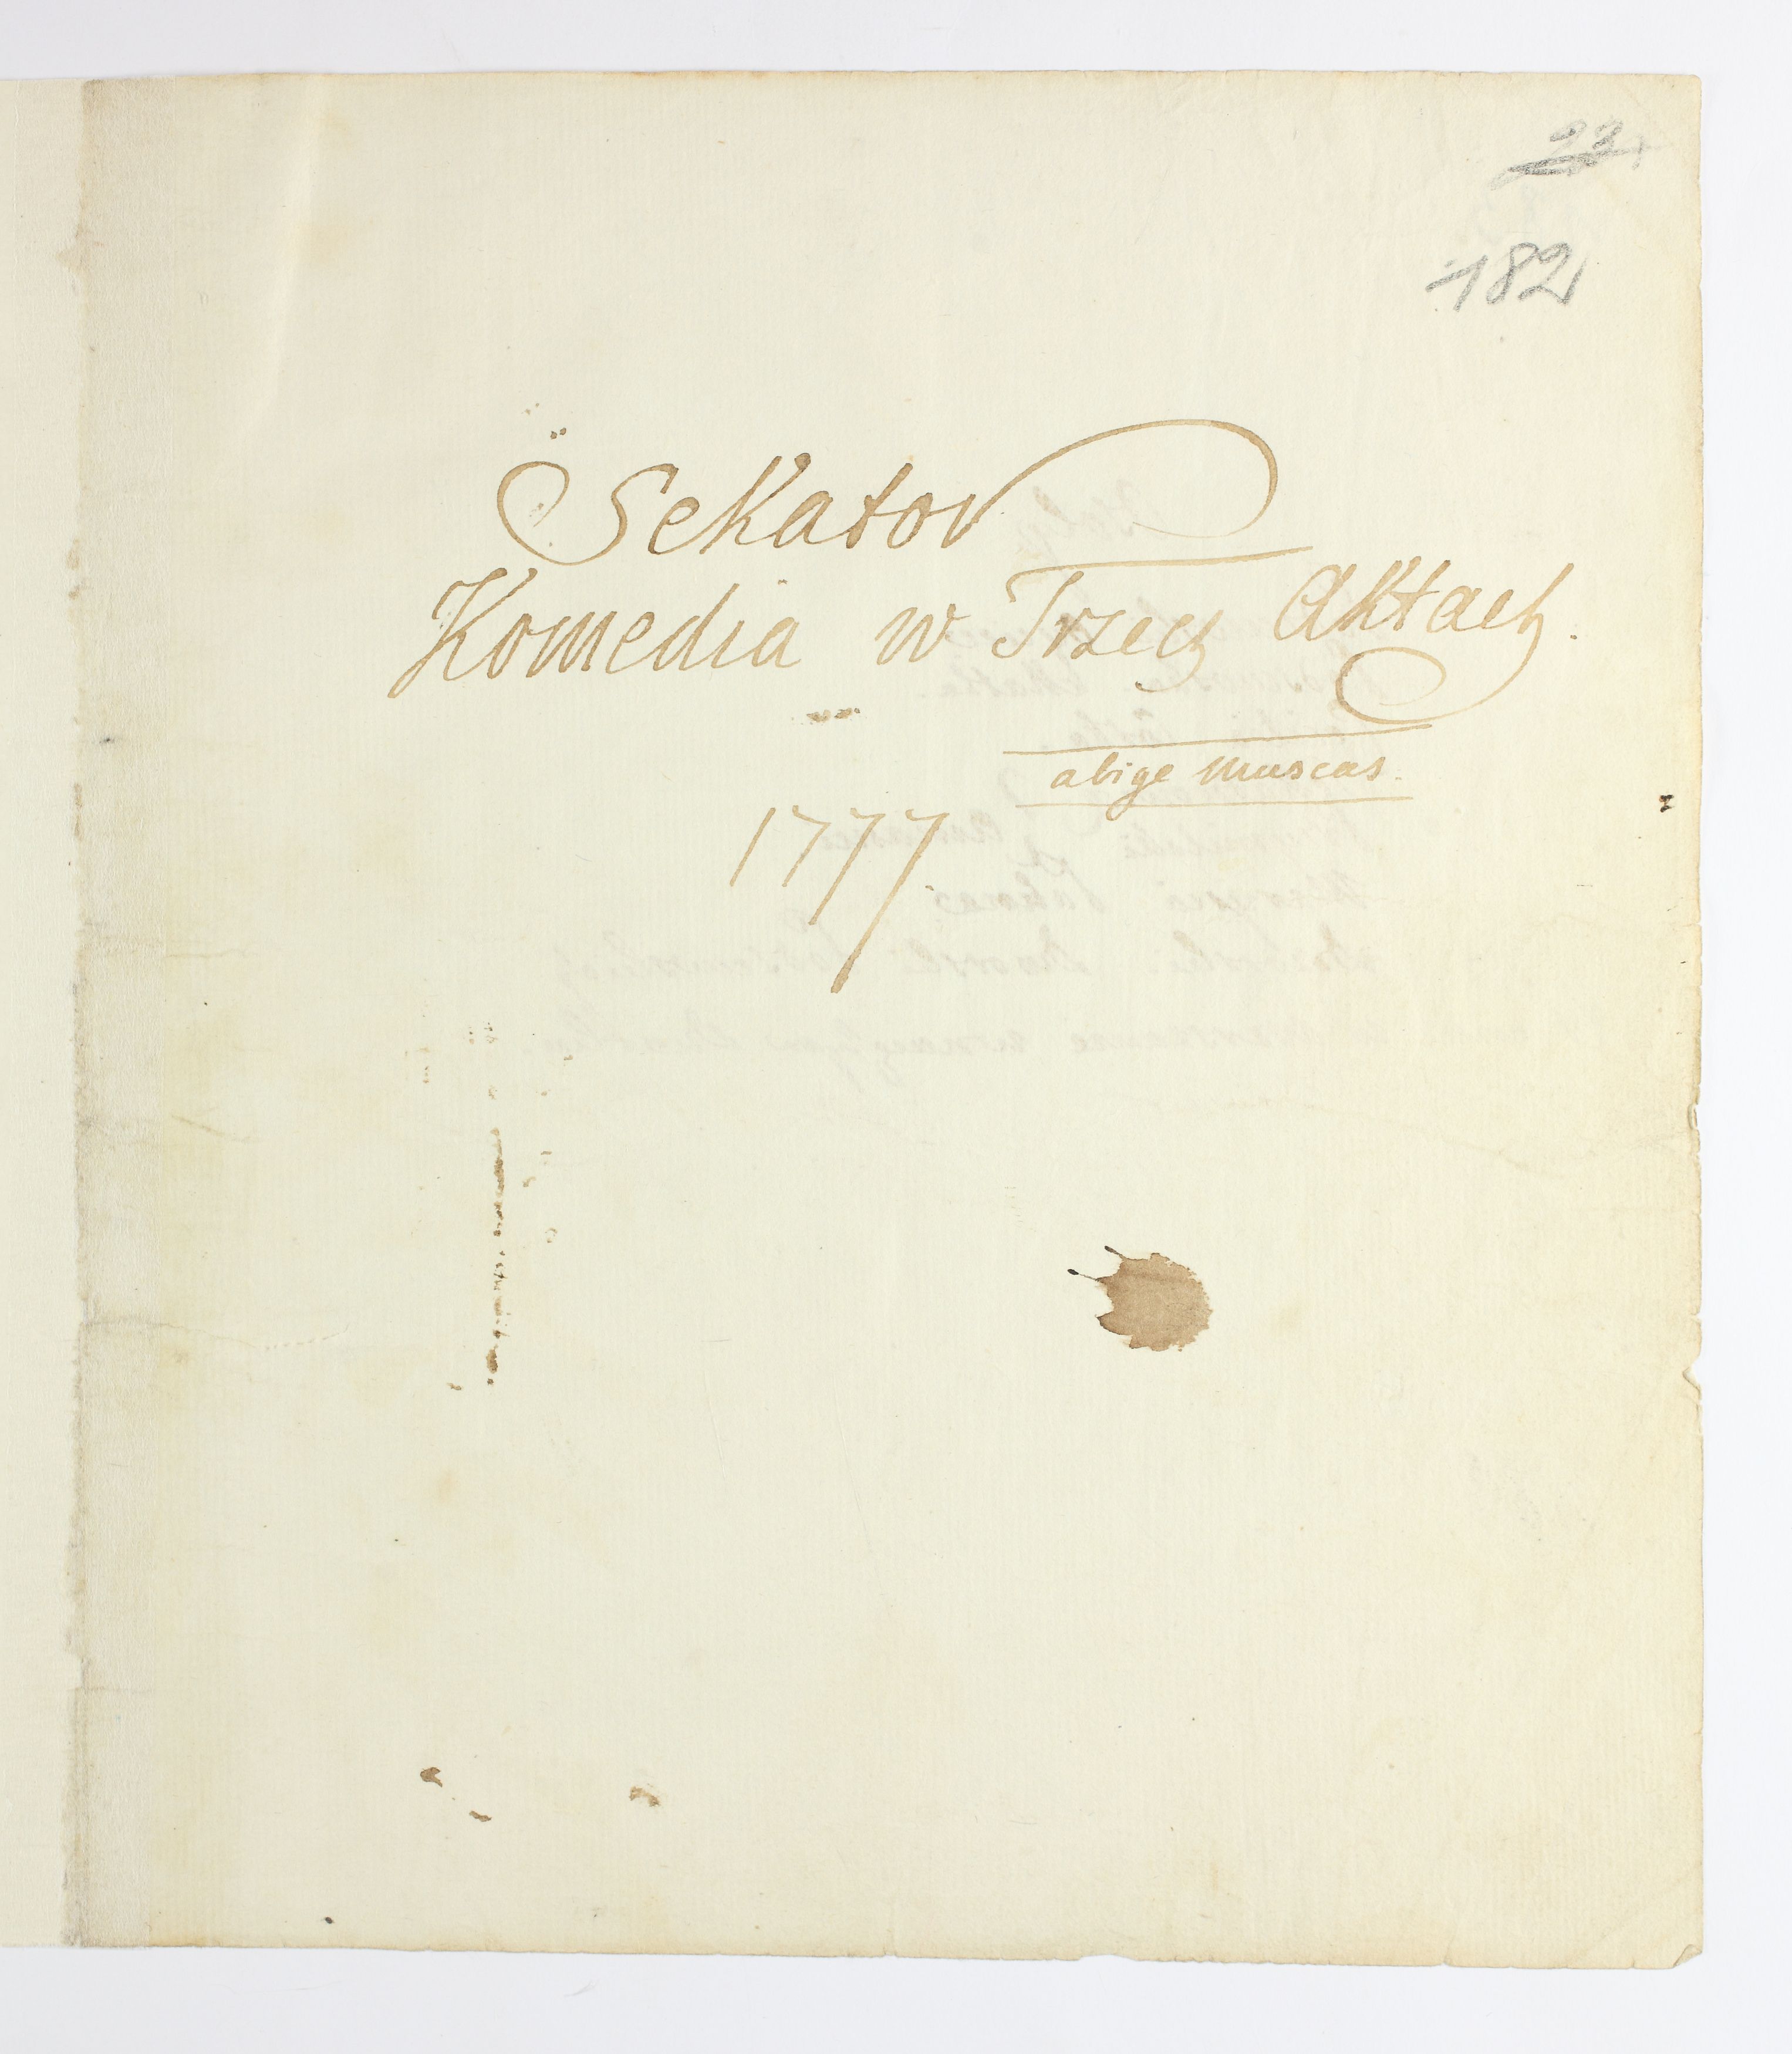 23
182
Sekator
Komedia w Trzech Aktach.
abige muscas.
1777